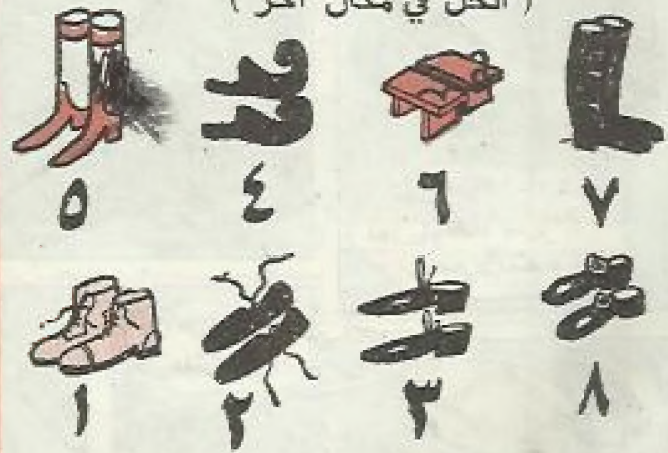 ( الحل في مكان آخر )
٥ ٤ ٦ ٧
١ ٢ ٣ ٨